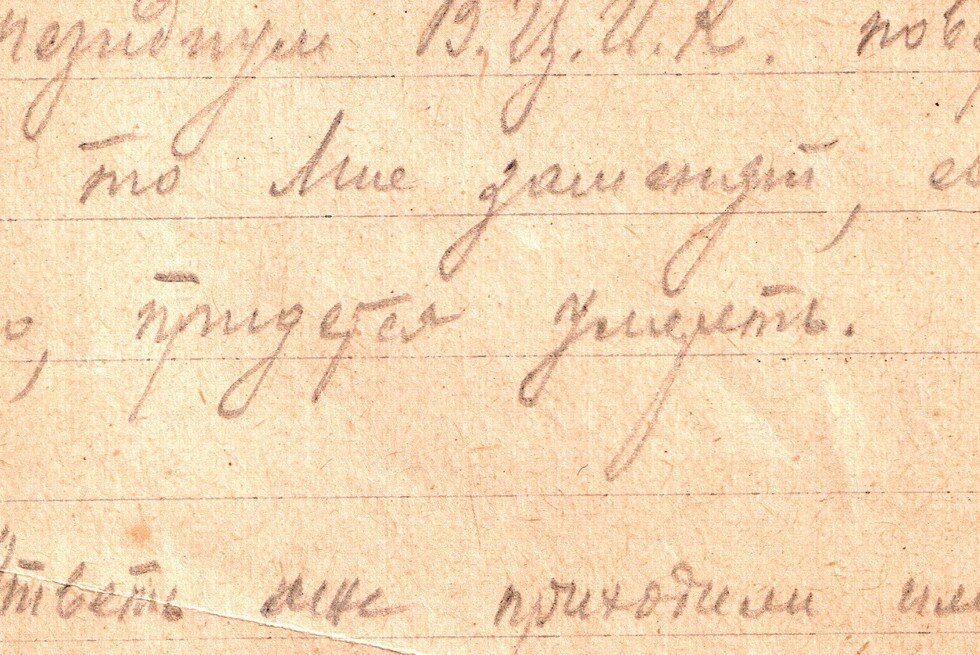 президиум В.Ц.И.К. пов
то мне заменят, е
о, придется умереть.
Ответь мне приходили ил